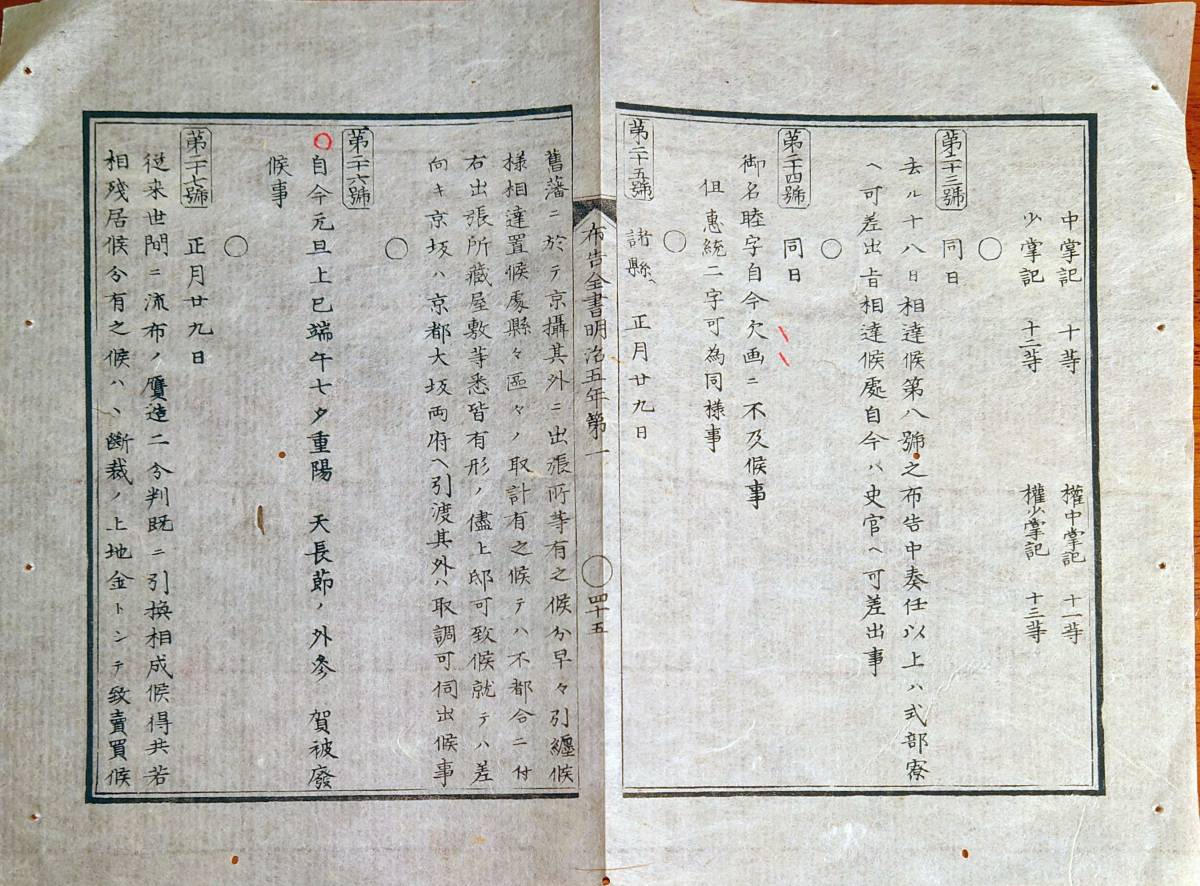 中掌記 十等 權中掌記 十一等
少掌記 十二等 權少掌記 十三等
○
第二十三號 同日
去ル十八日相達候第八號之布告中奏任以上ハ式部寮
ヘ可差出旨相達候處自今ハ史官ヘ可差出事
○
第二十四號 同日
御名睦字自今欠画ニ不及候事
但惠統二字可為同樣事
○
第二十五號 諸縣 正月廿九日
布告全書明治五年第一 ○四十五
舊藩ニ於テ京攝其外ニ出張所等有之候分早々引纏候
樣相達置候處縣々區々ノ取計有之候テハ不都合ニ付
右出張所藏屋敷等悉皆有形ノ儘上邸可致候就テハ差
向キ京坂ハ京都大坂両府ヘ引渡其外ハ取調可伺出候事
○
第二十六號
○自今元旦上巳端午七夕重陽 天長節ノ外參 賀被廢
候事
○
第二十七號 正月廿九日
從来世間ニ流布ノ贋造二分判既ニ引換相成候得共若
相殘居候分有之候ハヽ斷裁ノ上地金トシテ致賣買候